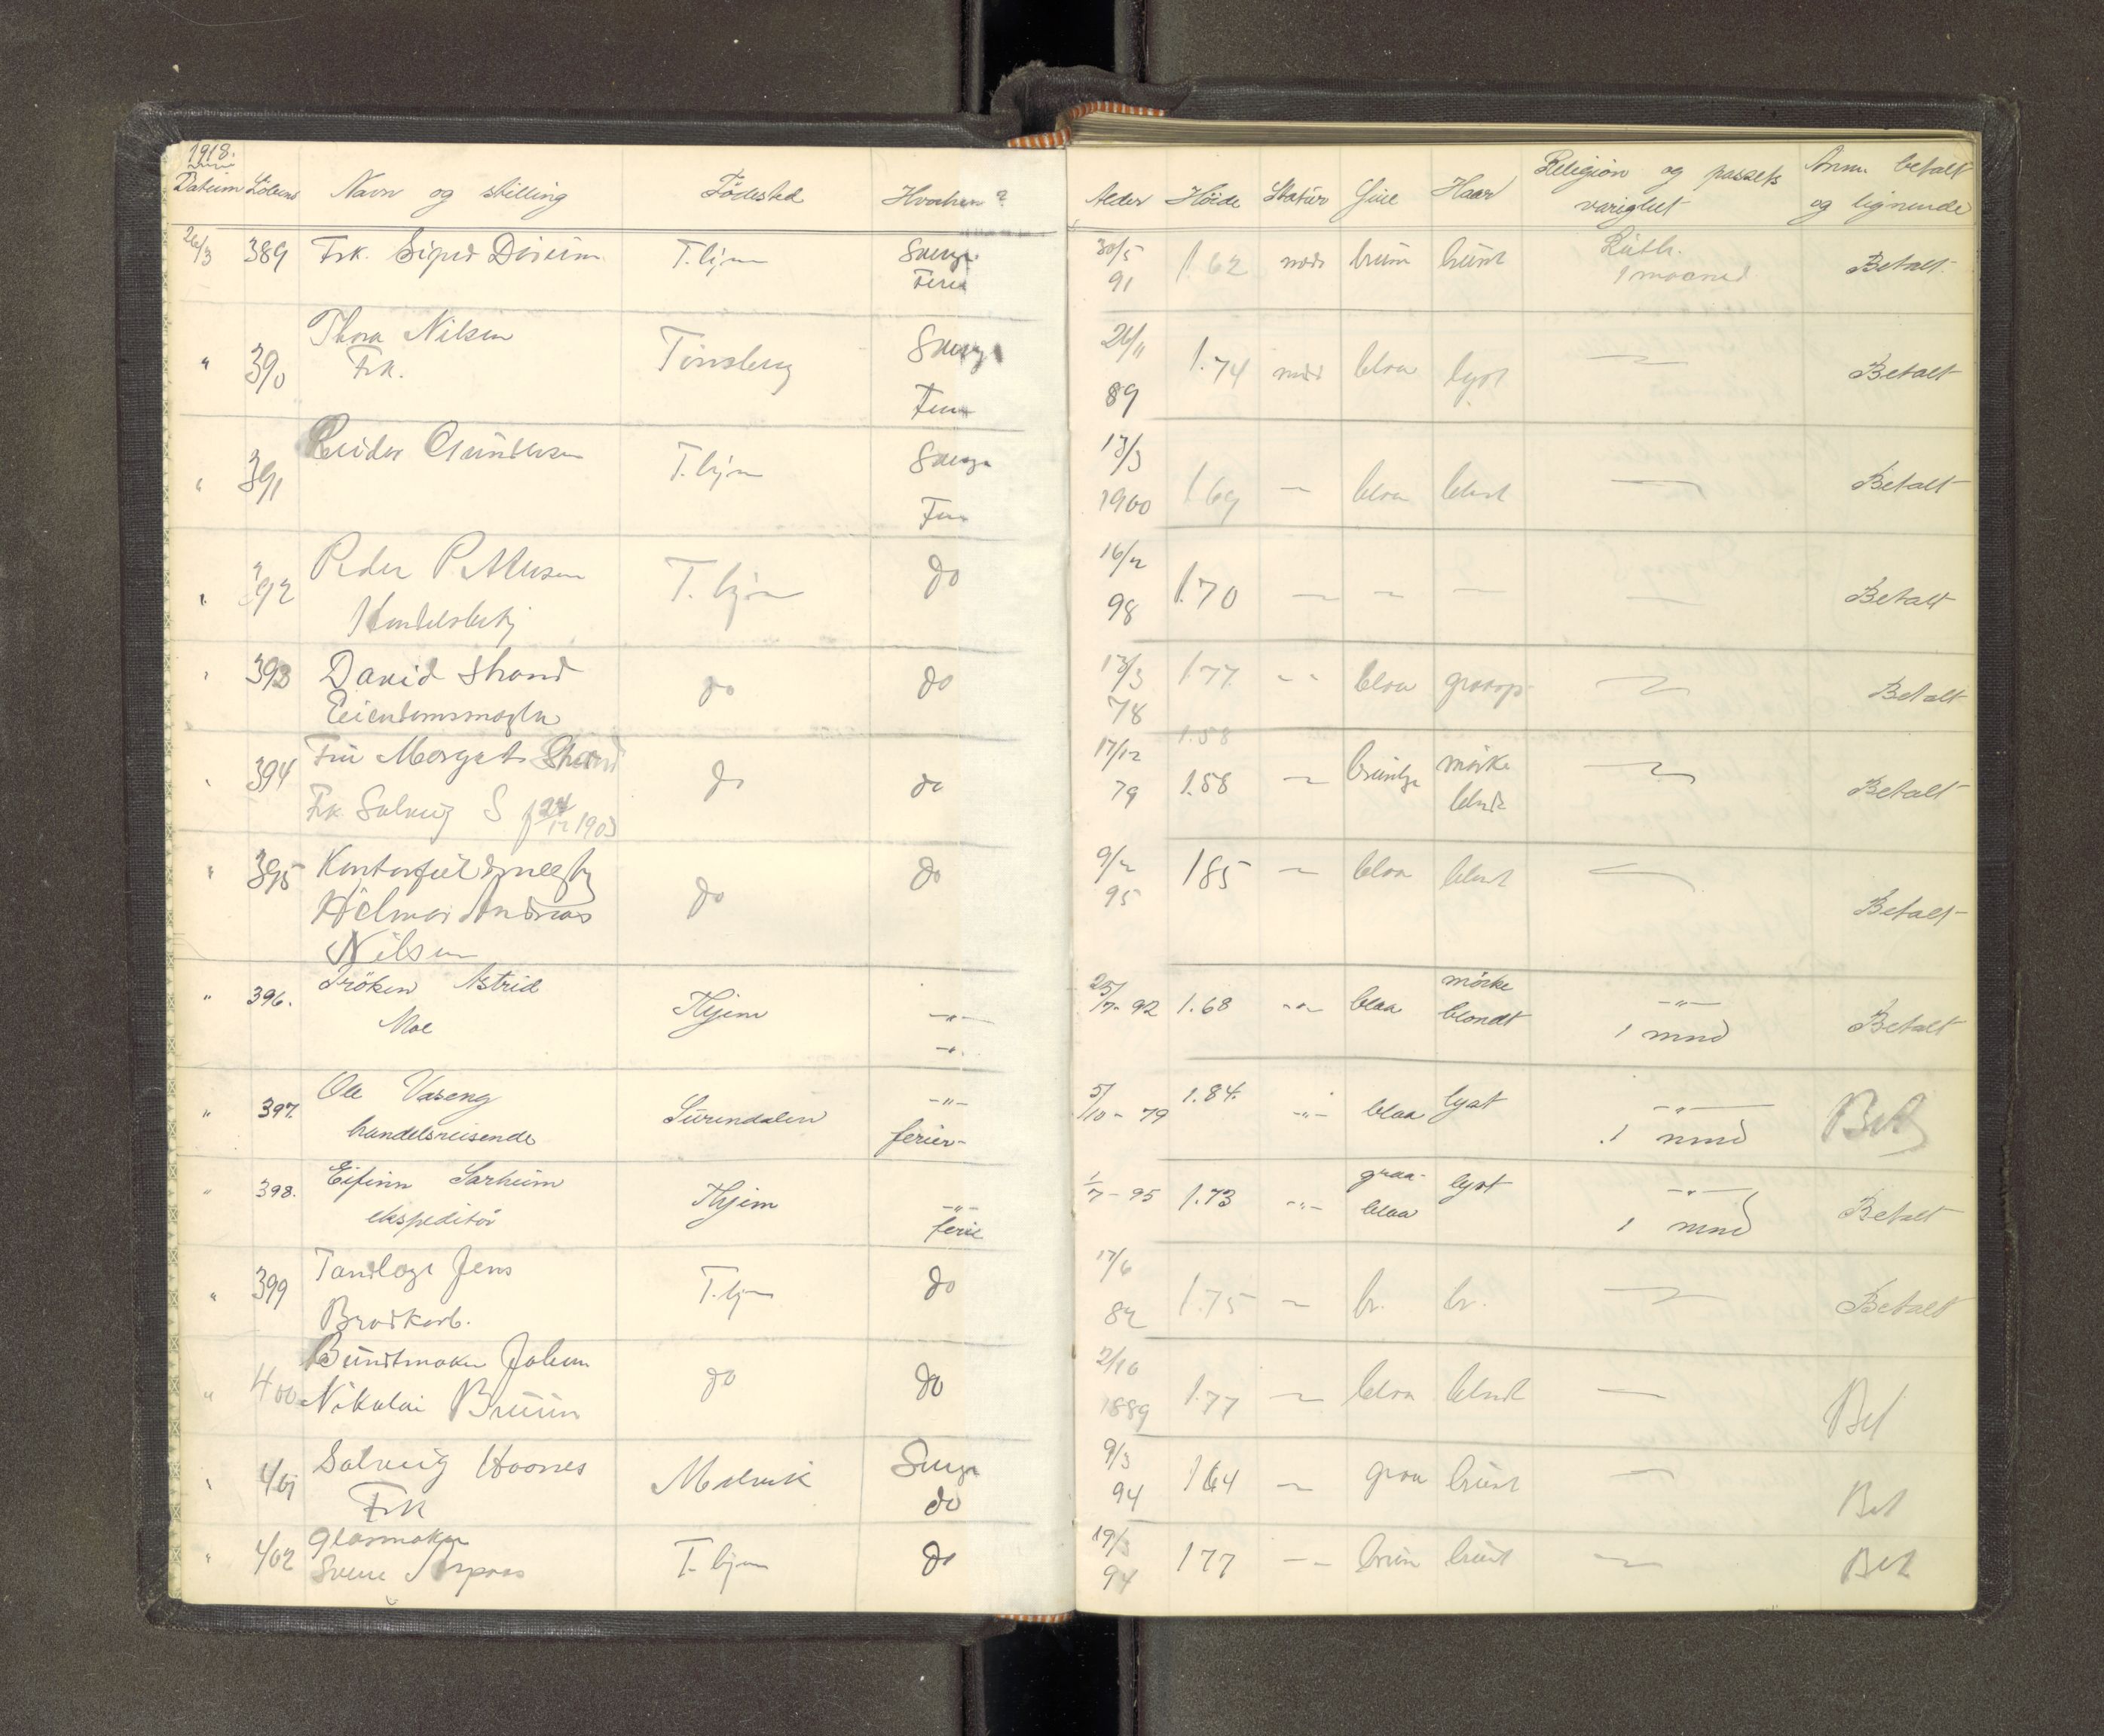 1918.
Datum Löbenr Navn og stilling Födested Hvorhen?
Alder Höide Statur Öine Haar Religion og passets varighet Anm. betalt og lignende
26/3 389 Frk. T.hjm Sverge Ferie
30/5 91 1.62 mid brun brunt Luth. 1 maaned Betalt
" 390 Thora Nilsen Frk. Tönsberg Sverge Ferie
26/11 89 1.74 mid blaa lyst Betalt
" 391 Reidar Gundersen T.hjm Sverge Fer
13/3 1900 1.69 — blaa blond — Betalt
" 392 Peder Pettersen Handelsbetj T.hjm do
16/2 98 1.70 — — — — Betalt
" 393 David Strand Eiendomsmægler do do
13/3 78 1.77 - - blaa graasp. — Betalt
" 394 Fru Margret Strand do do
Frk Solveig S f 24/12 1903
17/12 79 1.58 1.58 — mörke blond — Betalt
" 395 Kontorfuldmægtig Hilmar Andreas Nilsen do do
9/2 95 185 — blaa blond — Betalt
" 396. Fröken Astrid Moe Thjem -"-
23/7-92 1.68 -"- blaa mörke blondt -"- 1 mnd Betalt
" 397. Ole Vaseng handelsreisende Surendalen -"- ferie-
5/10-79 1.84. -"- blaa lyst -"- 1 mnd Bet
" 398. ekspeditör Thjem -"- ferie
1/7-95 1.73 -"- graa-blaa lyst -"- 1 mnd Betalt
" 399 Tandlæge Jens Brodkorb. T.hjm do
17/6 82 1.75 — br. br. — Betalt
" 400 Buntmaker Johan Nikolai Bruun do do
2/10 1889 1.77 — blaa blond — Bet
" 401 Solveig Haanes Frk Malvik Sverge do
9/3 94 164 — graa brunt — Bet
" 402 Glasmaker T.hjm do
19/3 94 177 - - brun brunt — Bet